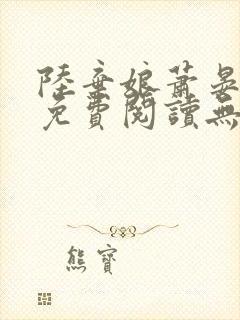 陸棄娘蕭晏
免費閱讀無
熊寶